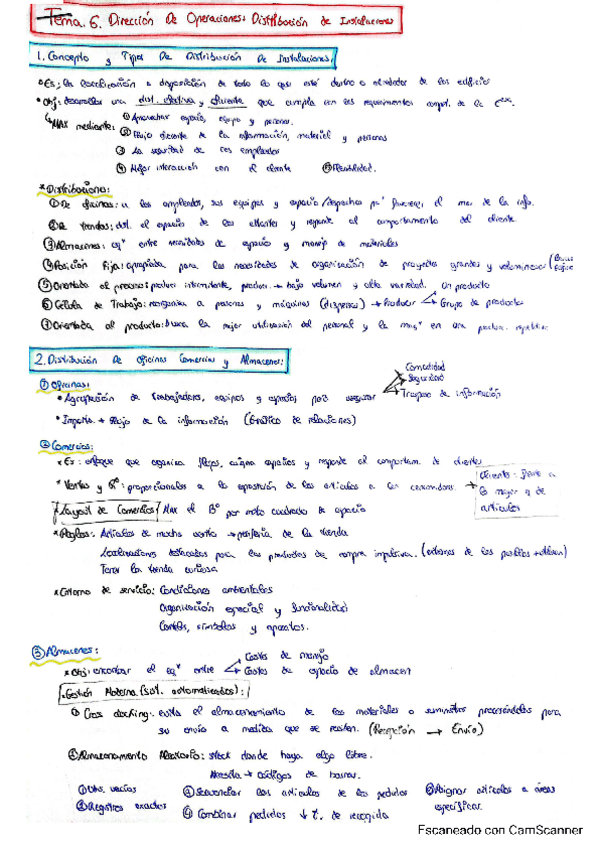 Tema. 6. Dirección De Operaciones: Distribución de Instalaciones
1. Concepto y Tipos De Distribución De Instalaciones:
• Es: la localización o disposición de todo lo que está dentro o alrededor de los edificios
• Obj: desarrollar una dist. efectiva y eficiente que cumpla con los requerimientos compet. de la
↳ Max mediante: ① Aprovechar espacio, equipo y personas.
② Flujo eficiente de la información, material y personas
③ La seguridad de los empleados
④ Mejor interacción con el cliente ⑤ Flexibilidad.
* Distribuciones:
① De oficinas: a los empleados, sus equipos y espacio/despachos pa' favorecer el mov de la info.
② De tiendas: dist. el espacio de los estantes y responde al comportamiento del cliente
③ Almacenes: eqº entre necesidades de espacio y manejo de materiales
④ Posición Fija: apropiada para las necesidades de organización de proyectos grandes y voluminosos
⑤ Orientada al proceso: producir intermitente, producc. → bajo volumen y alta variedad.
⑥ Célula de Trabajo: reorganiza a personas y máquinas (dispersas) → Producir Un producto
Grupo de productos
⑦ Orientada al producto: busca la mejor utilización del personal y la maqª en una repetitiva
2. Distribución De Oficinas Comercios y Almacenes:
① Oficinas:
• Agrupación de trabajadores, equipos y espacios para asegurar Comodidad
Seguridad
Traspaso de información
• Importa + flujo de la información (Gráfico de relaciones)
② Comercios:
* Es: enfoque que organiza flujos, asigna espacios y responde al comportam. de clientes
* Ventas y Bº: proporcionales a la exposición de los artículos a los consumidores. → Clientes: frente a
la mayor q de
artículos
Layout de Comercios Max el Bº por metro cuadrado de espacio
* Reglas: Artículos de mucha venta → periferia de la tienda
Localizaciones destacadas para los productos de compra impulsiva. (extremos de los pasillos
la tienda
* Entorno de servicio: Condiciones ambientales
Organización espacial y funcionalidad
Carteles, símbolos y aparatos.
③ Almacenes:
* Obj: encontrar el eqº entre Costes de manejo
Costes de espacio de almacen
Gestión Moderna (sist. automatizados):
① Cross docking: evita el almacenamiento de los materiales o suministros procesándolos para
su envío a medida que se reciben. (Recepción → Envío)
② Almacenamiento Aleatorio: stock donde haya algo libre.
Necesita → códigos de barras.
① Ubi. vacías ③ Secuenciar los artículos de los pedidos ⑤ Asignar artículos a áreas
② Registros exactos ④ Combinar pedidos ↓ t. de recogida específicas.
Escaneado con CamScanner